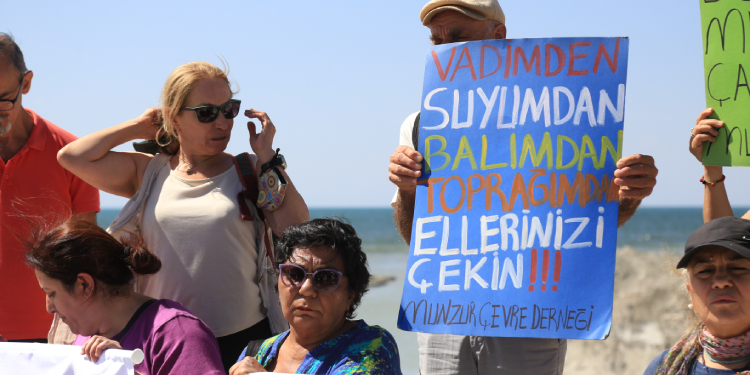 VADIMDEN
SUYUMDAN
BALIMDAN
TOPRAĞIMDAN
ELLERİNİZİ
ÇEKİN!!!
MUNZUR ÇEVRE DERNEĞİ